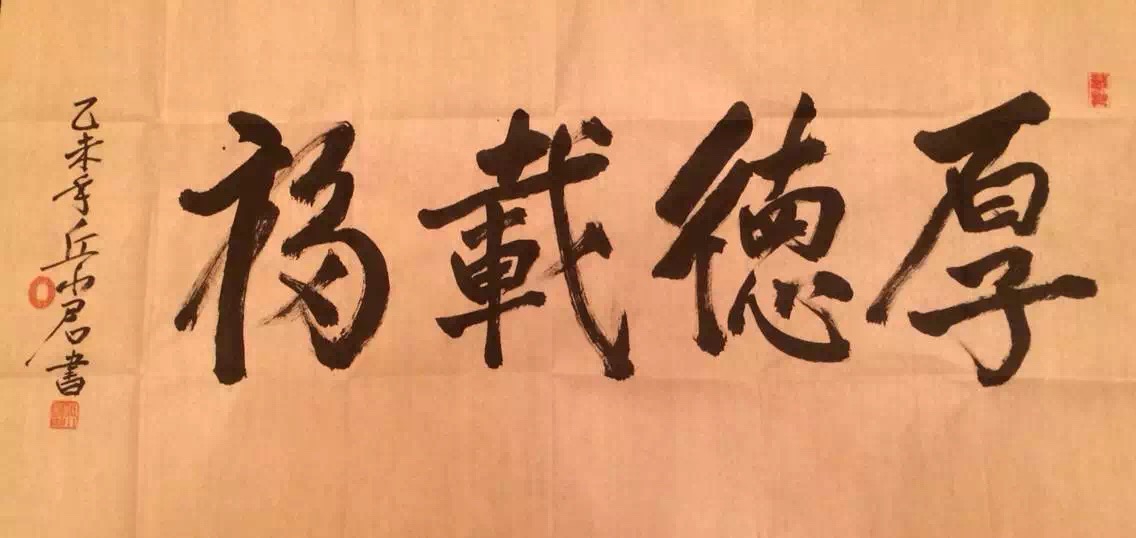 厚德載福
乙未年丘小君書